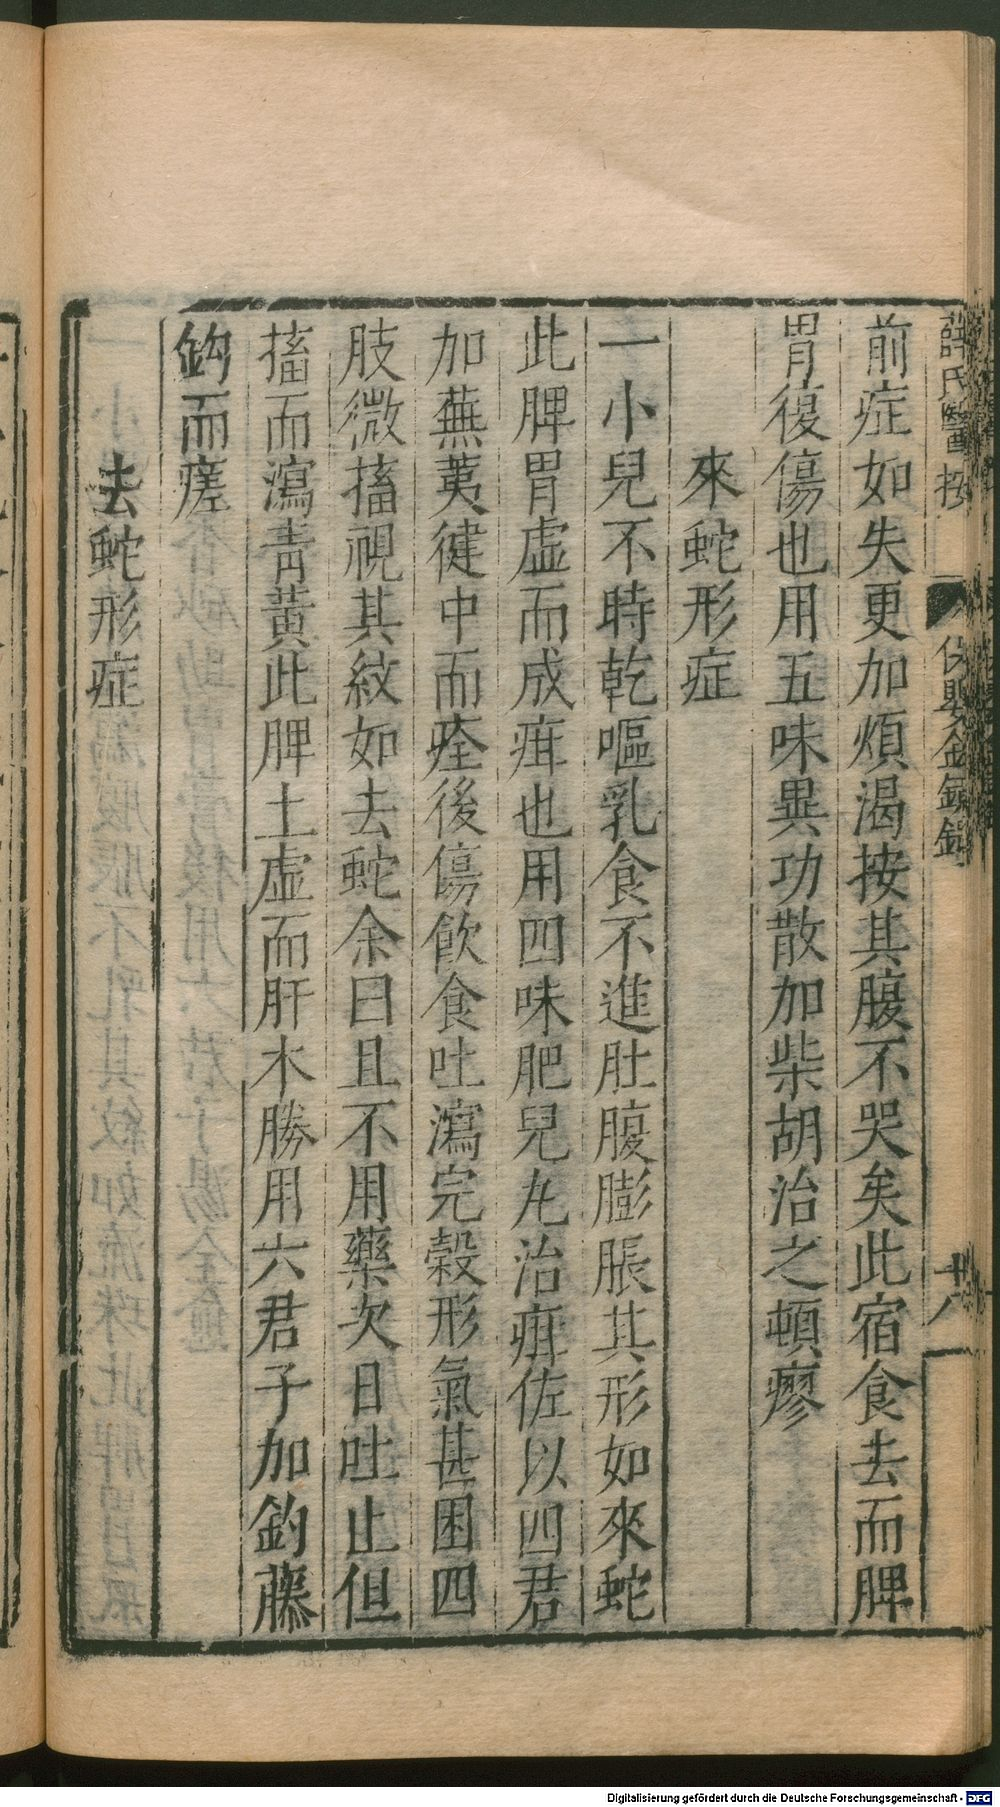 薛氏醫按
保嬰金鏡錄
十八
前症如失更加煩渴按其腹不哭矣此宿食去而脾
胃復傷也用五味異功散加柴胡治之頓瘳
來蛇形症
一小兒不時乾嘔乳食不進肚腹膨脹其形如來蛇
此脾胃虛而成疳也用四味肥兒丸治疳佐以四君
加蕪荑健中而痊後傷飲食吐瀉完穀形氣甚困四
肢微搐視其紋如去蛇余曰且不用藥次日吐止但
搐而瀉青黃此脾土虛而肝木勝用六君子加鈎藤
鈎而瘥
去蛇形症
Digitalisierung gefördert durch die Deutsche Forschungsgemeinschaft - DFG